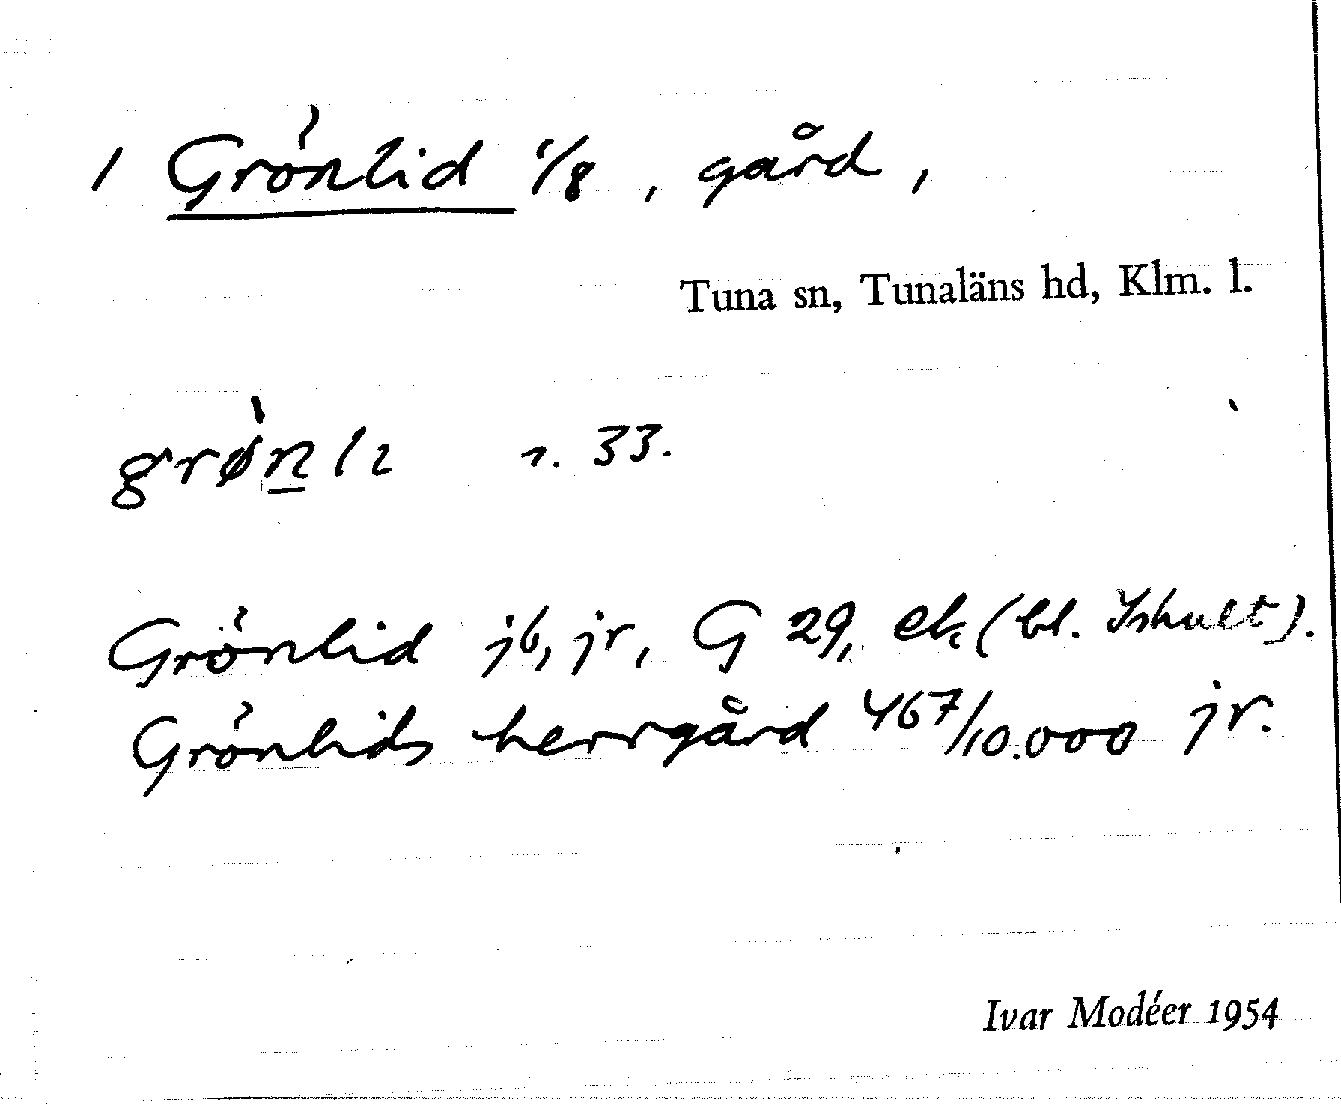 1 Grönlid 1/8, gård,
Tuna sn, Tunaläns hd, Klm. l.
grø̀n̲lɩ r. 33.
Grönlid jb, jr, G 29, ek (bl. Ishult).
Grönlids herrgård 467/10.000 jr.
Ivar Modéer 1954